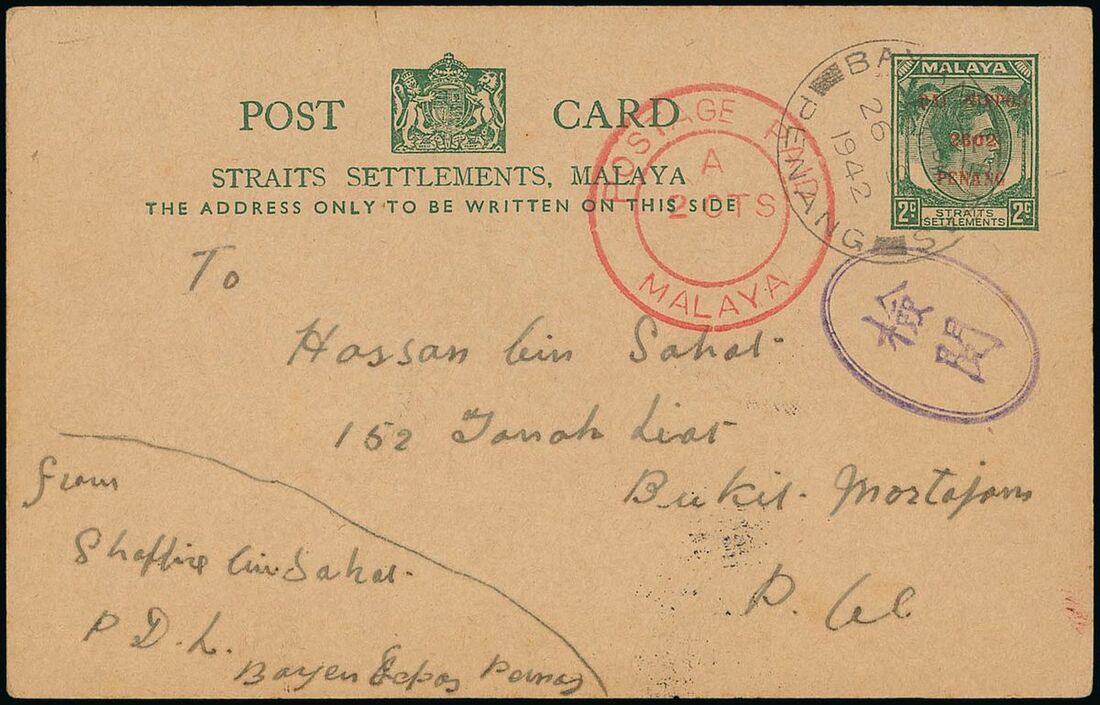 POST CARD
STRAITS SETTLEMENTS, MALAYA
THE ADDRESS ONLY TO BE WRITTEN ON THIS SIDE
POSTAGE
A
2 CTS
MALAYA
26
1942
PENANG
MALAYA
DAI NIPPON
2602
PENANG
2c STRAITS SETTLEMENTS 2c
檢閲
To
Hassan bin Sahat
152 Tanah Liat
Bukit Mertajam
P.
From
bin Sahat
P.D.L.
Bayan Lepas Penang